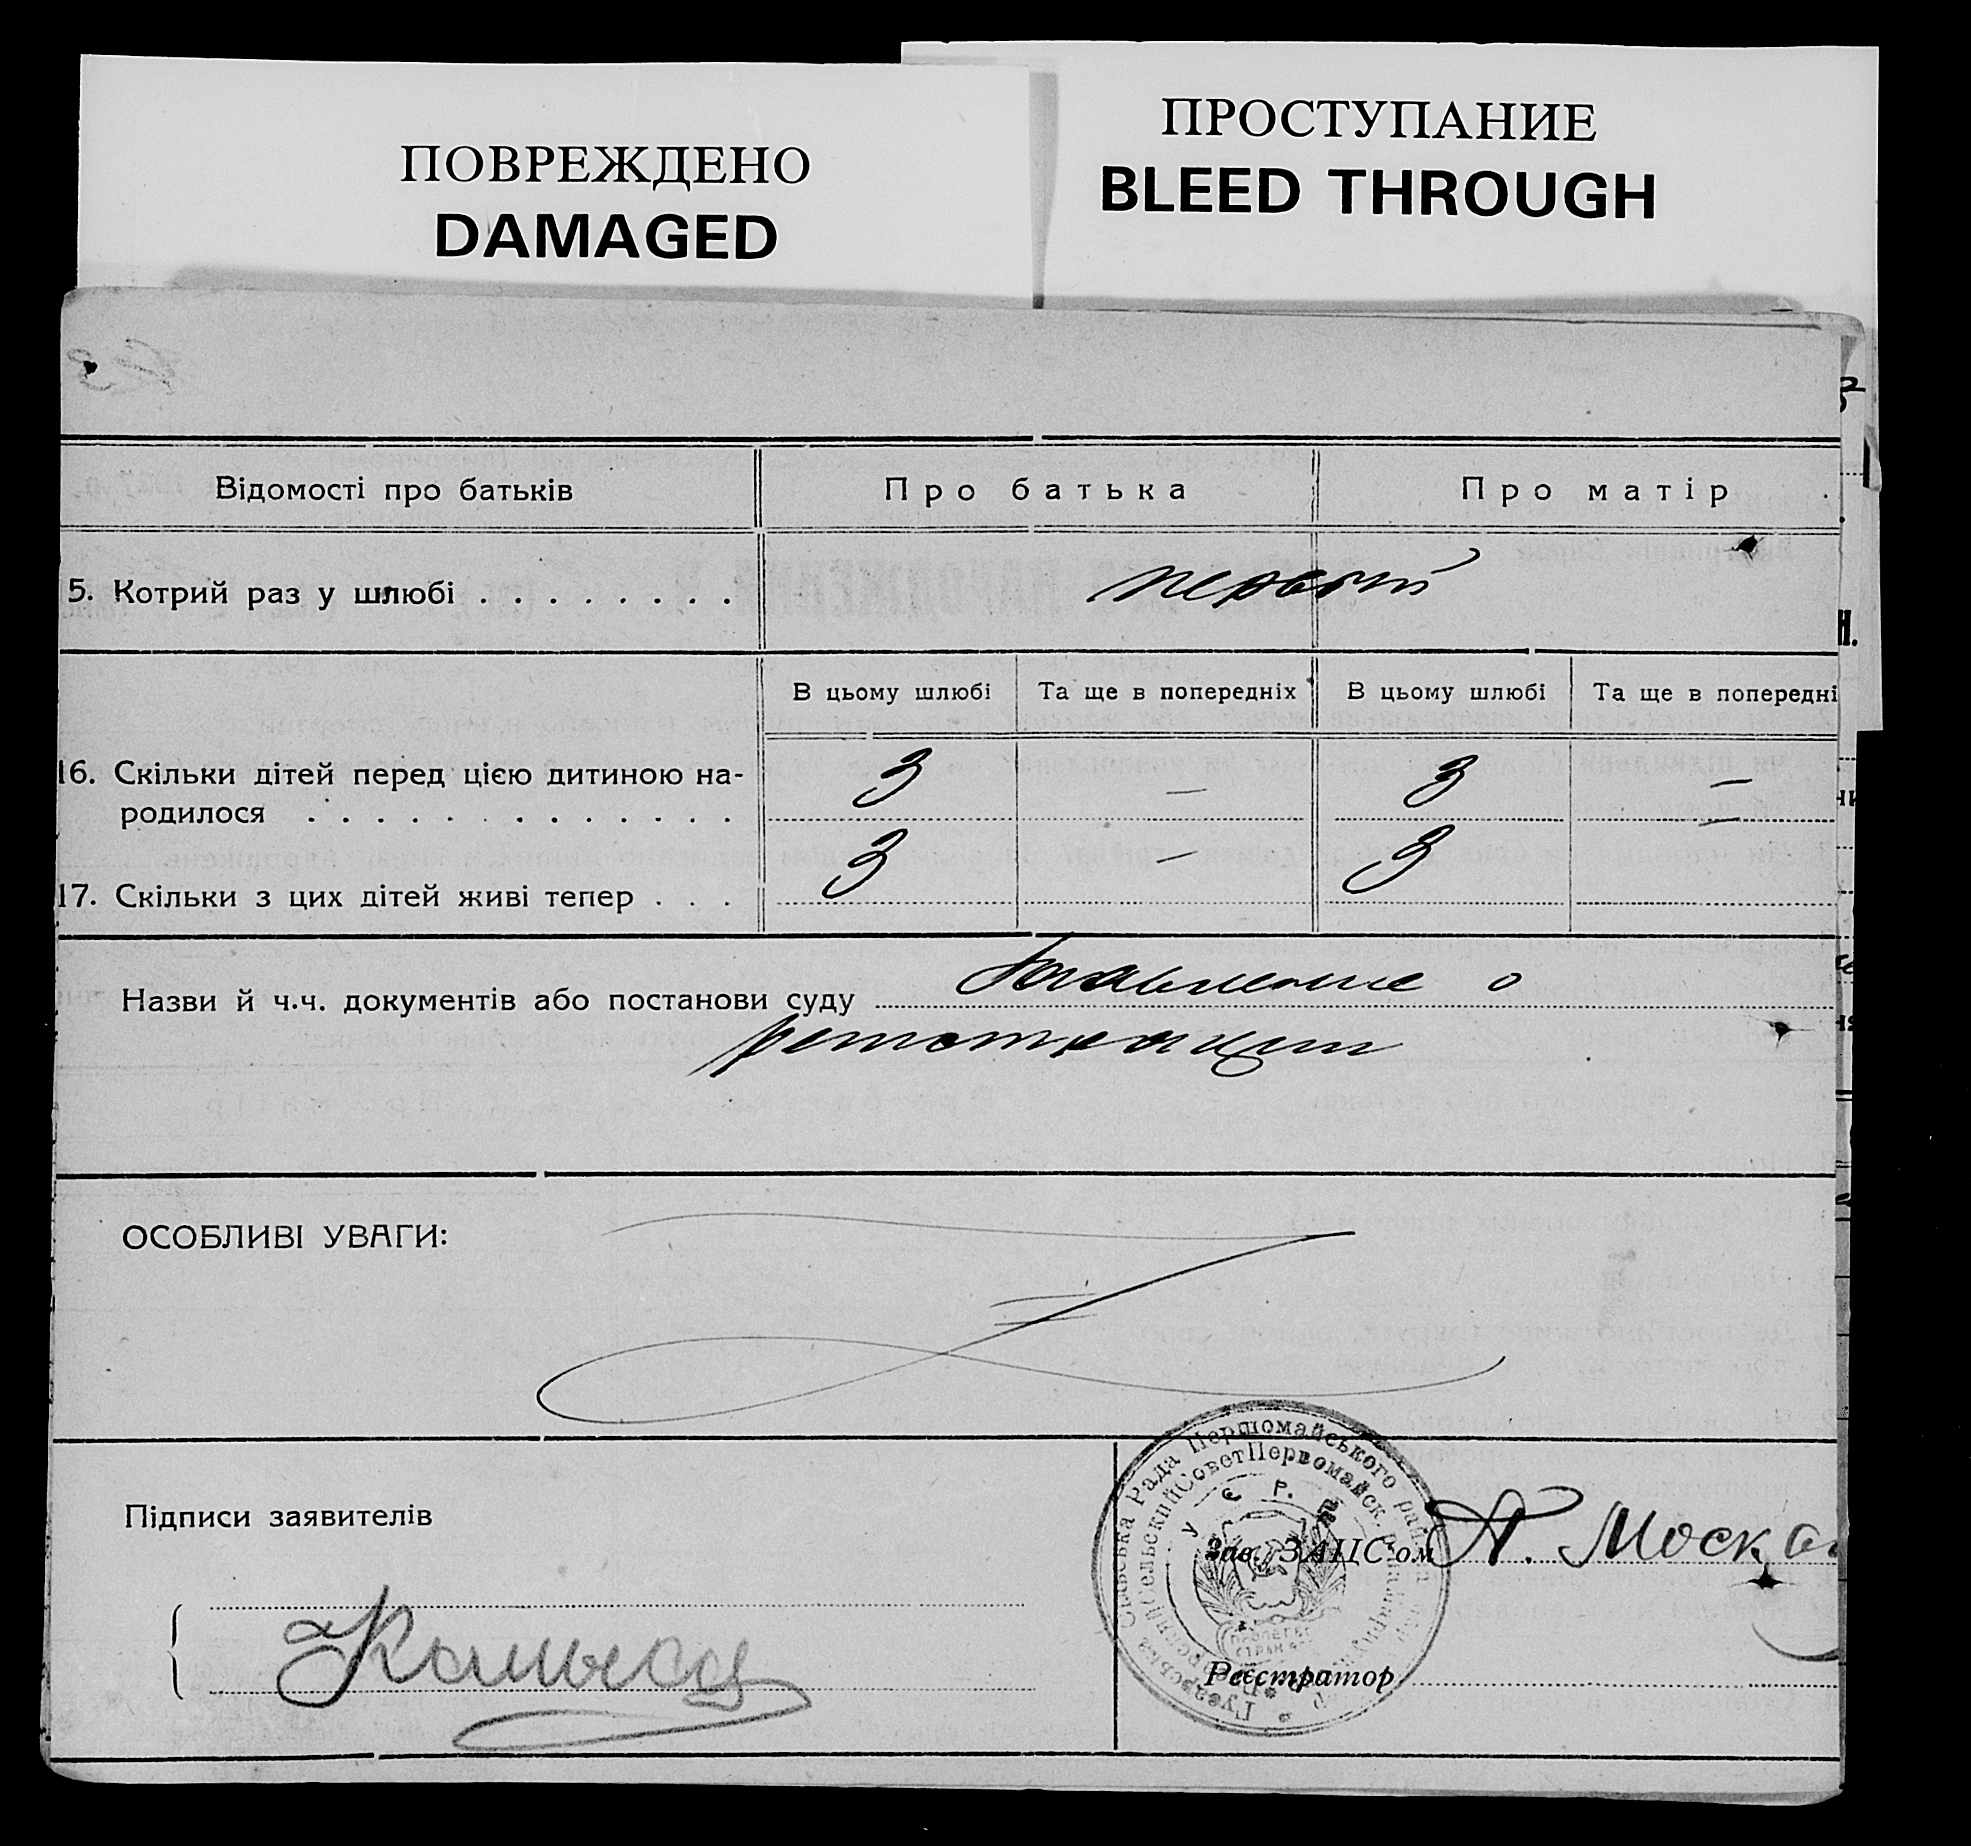 ПОВРЕЖДЕНО
DAMAGED
ПРОСТУПАНИЕ
BLEED THROUGH
Відомості про батьків
Про батька
Про матір
5. Котрий раз у шлюбі
первый
В цьому шлюбі
Та ще в попередніх
В цьому шлюбі
Та ще в попередні
16. Скільки дітей перед цією дитиною на-
родилося
3 — 3 —
17. Скільки з цих дітей живі тепер
3 — 3 —
Назви й ч.ч. документів або постанови суду
Заявление о
регистрации
ОСОБЛИВІ УВАГИ:
Підписи заявителів
Сільська Рада Першомайського
Совет Первомайск.
У С Р Р
Зав. ЗАЦС-ом
А. Моск
Реєстратор